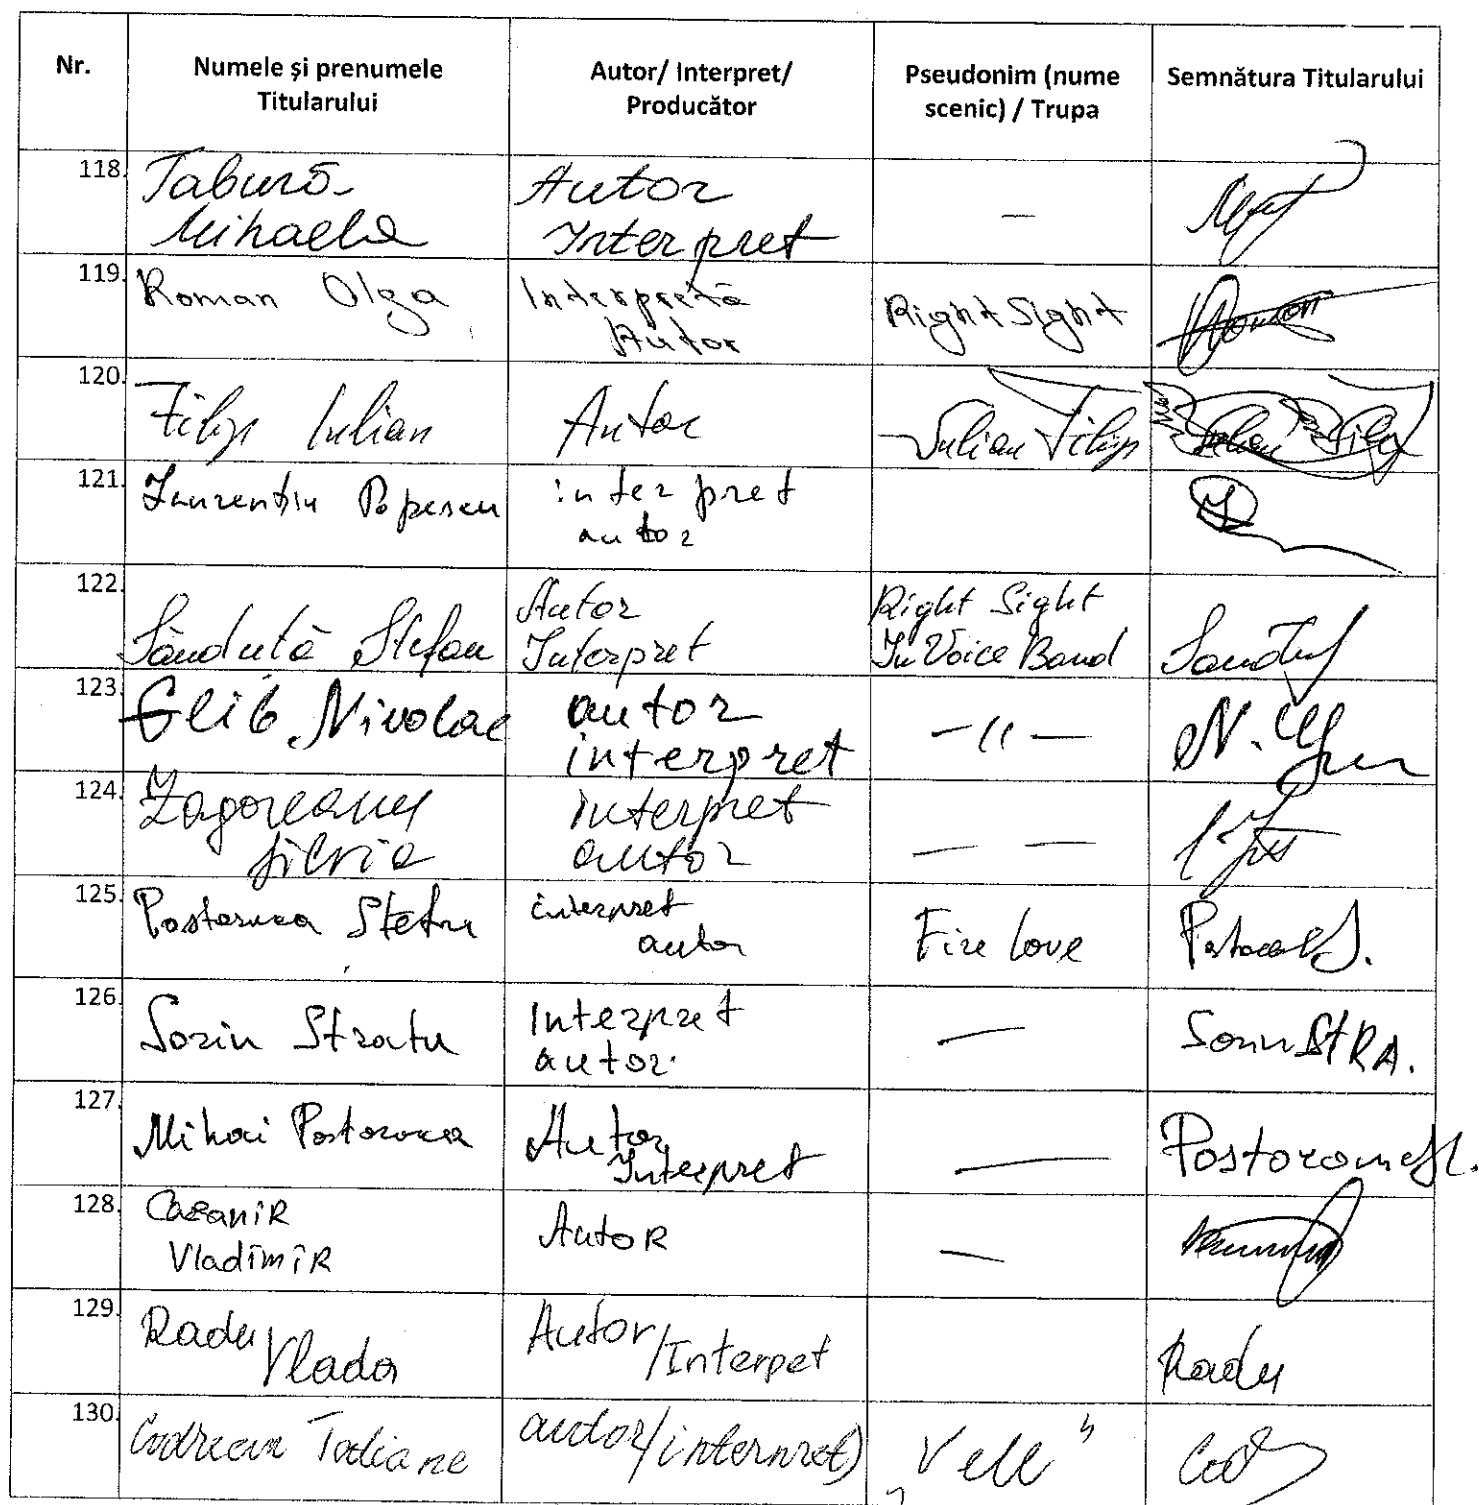 Nr.
Numele și prenumele
Titularului
Autor/ Interpret/
Producător
Pseudonim (nume
scenic) / Trupa
Semnătura Titularului
118.
Taburō
Mihaela
Autor
Interpret
—
119.
Roman Olga
Interpretă
Autor
Right Sight
Roman
120.
Filip Iulian
Autor
Iulian Filip
Iulian Filip
121.
Laurentiu Popescu
interpret
autor
122.
Sănduță Stefan
Autor
Interpret
Right Sight
In Voice Band
123.
Glib Nicolae
autor
interpret
—〃—
124.
Zagoreanu
Silvia
interpret
autor
— —
125.
Postoronca Stefan
interpret
autor
Fire love
126.
Sorin Stratu
Interpret
autor.
—
Sorin StRA.
127.
Mihai Postoronca
Autor
Interpret
—
128.
CazaniR
VladimiR
AutoR
—
129.
Radu
Vlada
Autor
/Interpet
Radu
130.
Codrean Tatiana
autor/interpret)
„Vell"